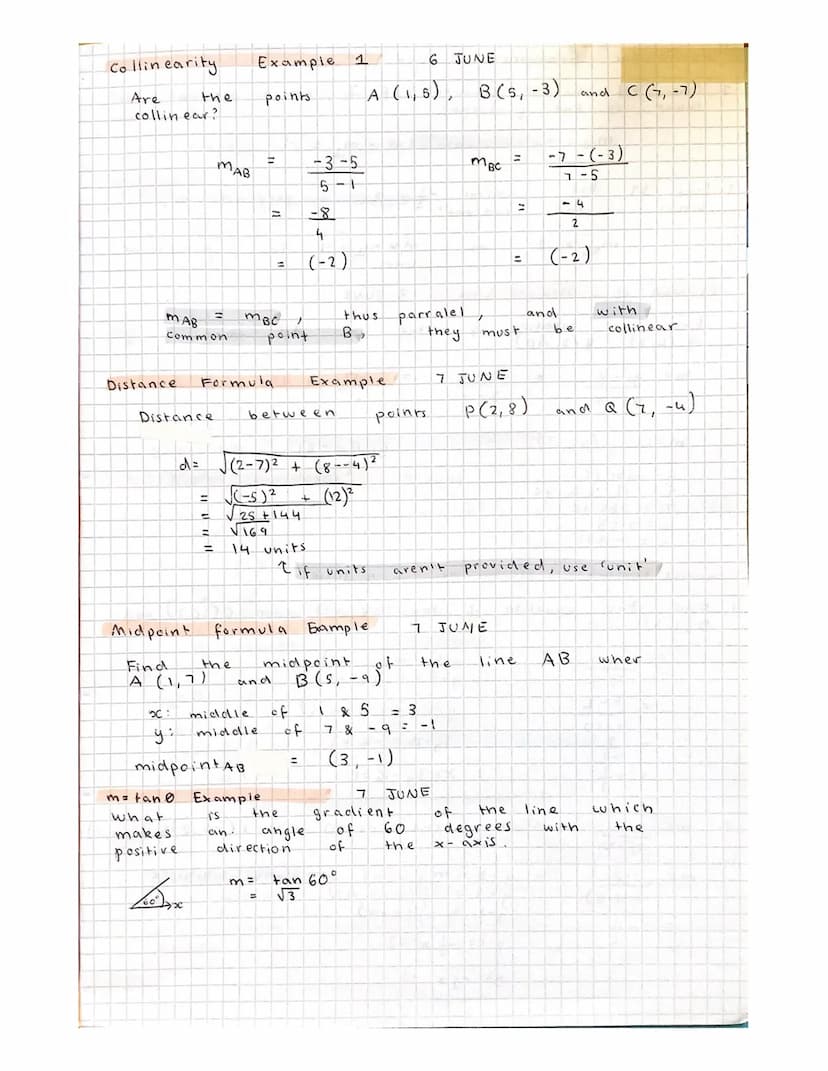 Collinearity Example 1 6 JUNE
Are the points A (1,5), B(5, -3) and C (7, -7)
collinear?
mAB = -3 -5 / 5 - 1 mBC = -7 -(-3) / 7 -5
= -8 / 4 = -4 / 2
= (-2) = (-2)
mAB = mBC, thus parralel, and with
common point B, they must be collinear
Distance Formula Example 7 JUNE
Distance between points P(2,8) and Q (7, -4)
d= √(2-7)² + (8--4)²
= √(-5)² + (12)²
= √25 +144
= √169
= 14 units
↑ if units aren't provided, use 'unit'
Midpoint formula Example 7 JUNE
Find the midpoint of the line AB wher
A (1,7) and B(5, -9)
x: middle of 1 & 5 = 3
y: middle of 7 & -9 = -1
midpointAB = (3, -1)
m=tanθ Example 7 JUNE
what is the gradient of the line which
makes an angle of 60 degrees with the
positive direction of the x-axis.
m= tan 60°
= √3
60° x